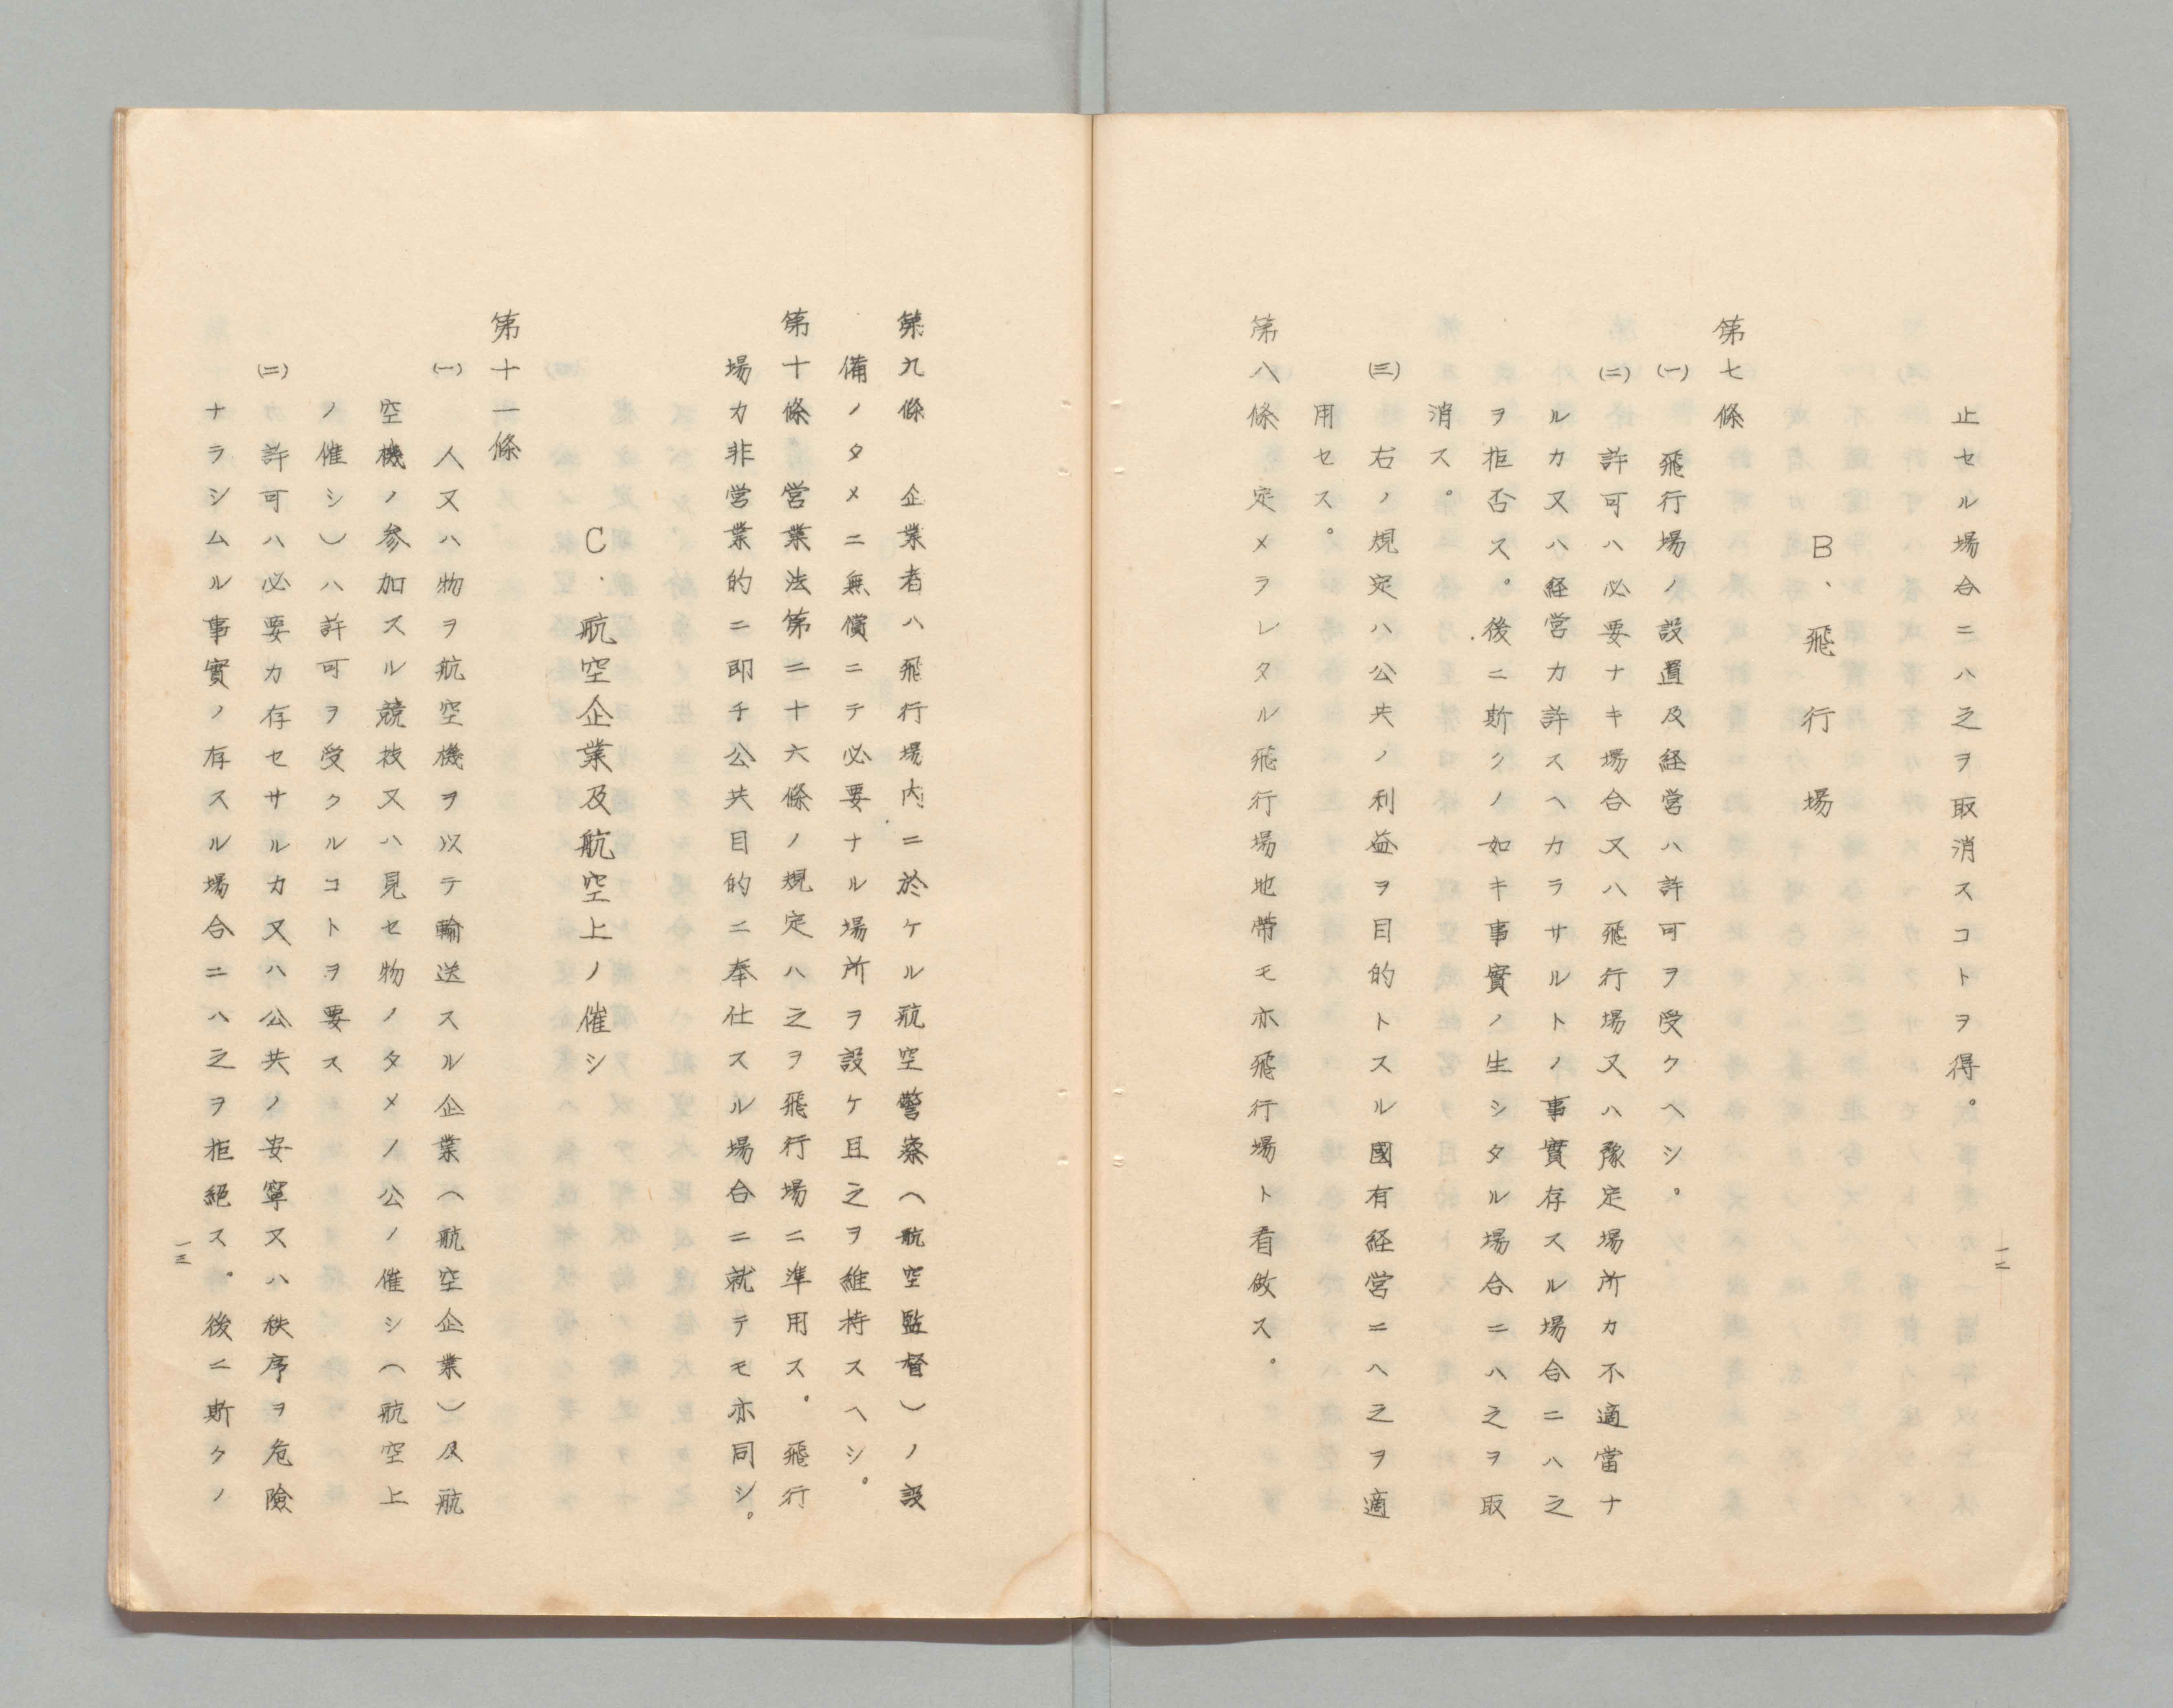 止セル場合ニハ之ヲ取消スコトヲ得。
B、飛行場
第七條
㈠　飛行場ノ設置及経営ハ許可ヲ受クヘシ。
㈡　許可ハ必要ナキ場合又ハ飛行場又ハ豫定場所カ不適當ナ
ルカ又ハ経営カ許スヘカラサルトノ事實存スル場合ニハ之
ヲ拒否ス。後ニ斯クノ如キ事實ノ生シタル場合ニハ之ヲ取
消ス。
㈢　右ノ規定ハ公共ノ利益ヲ目的トスル國有経営ニヘ之ヲ適
用セス。
第八條　定メラレタル飛行場地帯モ亦飛行場ト看做ス。
一二
第九條　企業者ハ飛行場内ニ於ケル航空警察（航空監督）ノ設
備ノタメニ無償ニテ必要ナル場所ヲ設ケ且之ヲ維持スヘシ。
第十條　営業法第二十六條ノ規定ハ之ヲ飛行場ニ準用ス。飛行
場カ非営業的ニ即チ公共目的ニ奉仕スル場合ニ就テモ亦同シ。
C．航空企業及航空上ノ催シ
第十一條
㈠　人又ハ物ヲ航空機ヲ以テ輸送スル企業（航空企業）及航
空機ノ参加スル競技又ハ見セ物ノタメノ公ノ催シ（航空上
ノ催シ）ハ許可ヲ受クルコトヲ要ス
㈡　カ許可ハ必要カ存セサルカ又ハ公共ノ安寧又ハ秩序ヲ危險
ナラシムル事實ノ存スル場合ニハ之ヲ拒絕ス。後ニ斯クノ
一三